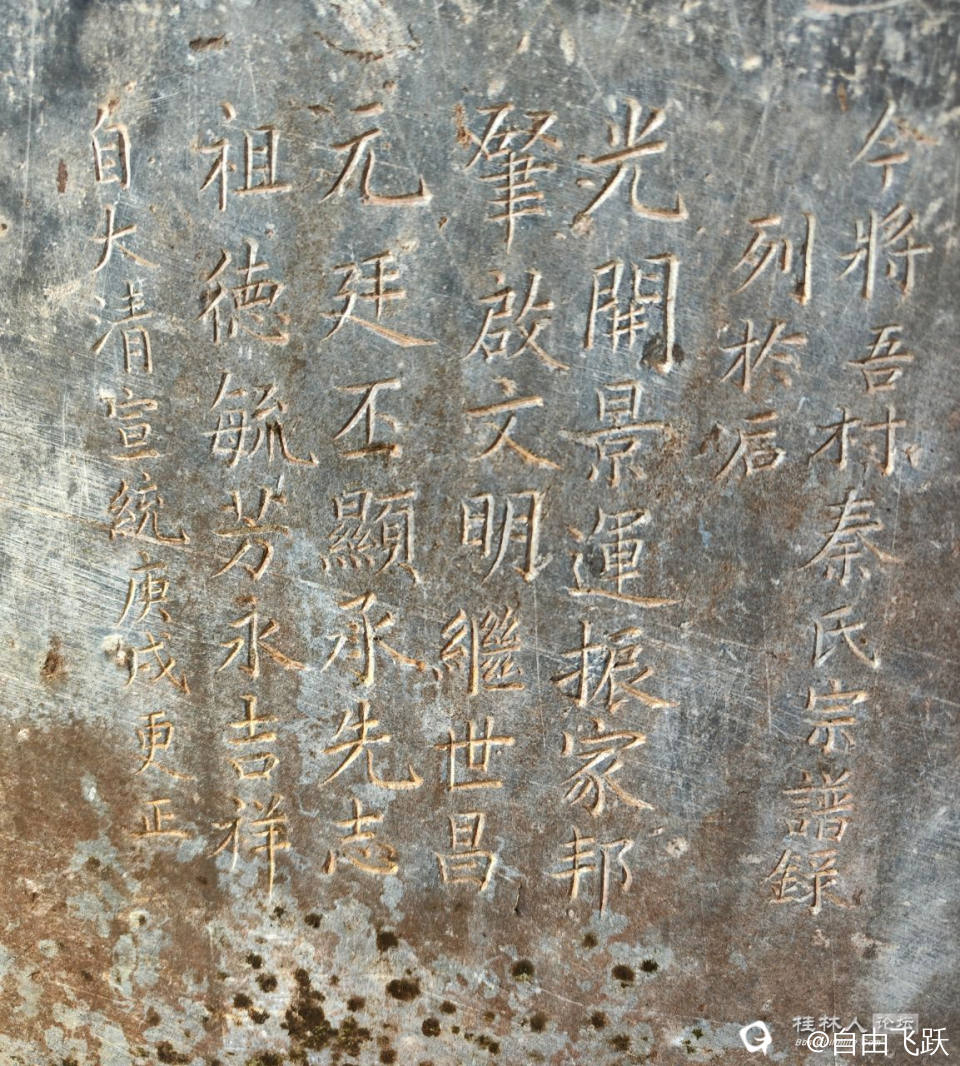 今將吾村秦氏宗譜錄
列於后
光開景運振家邦
肇啟文明繼世昌
元廷丕顯承先志
祖徳毓芳永吉祥
自大清宣統庚戌更正
桂林人论坛
@自由飞跃